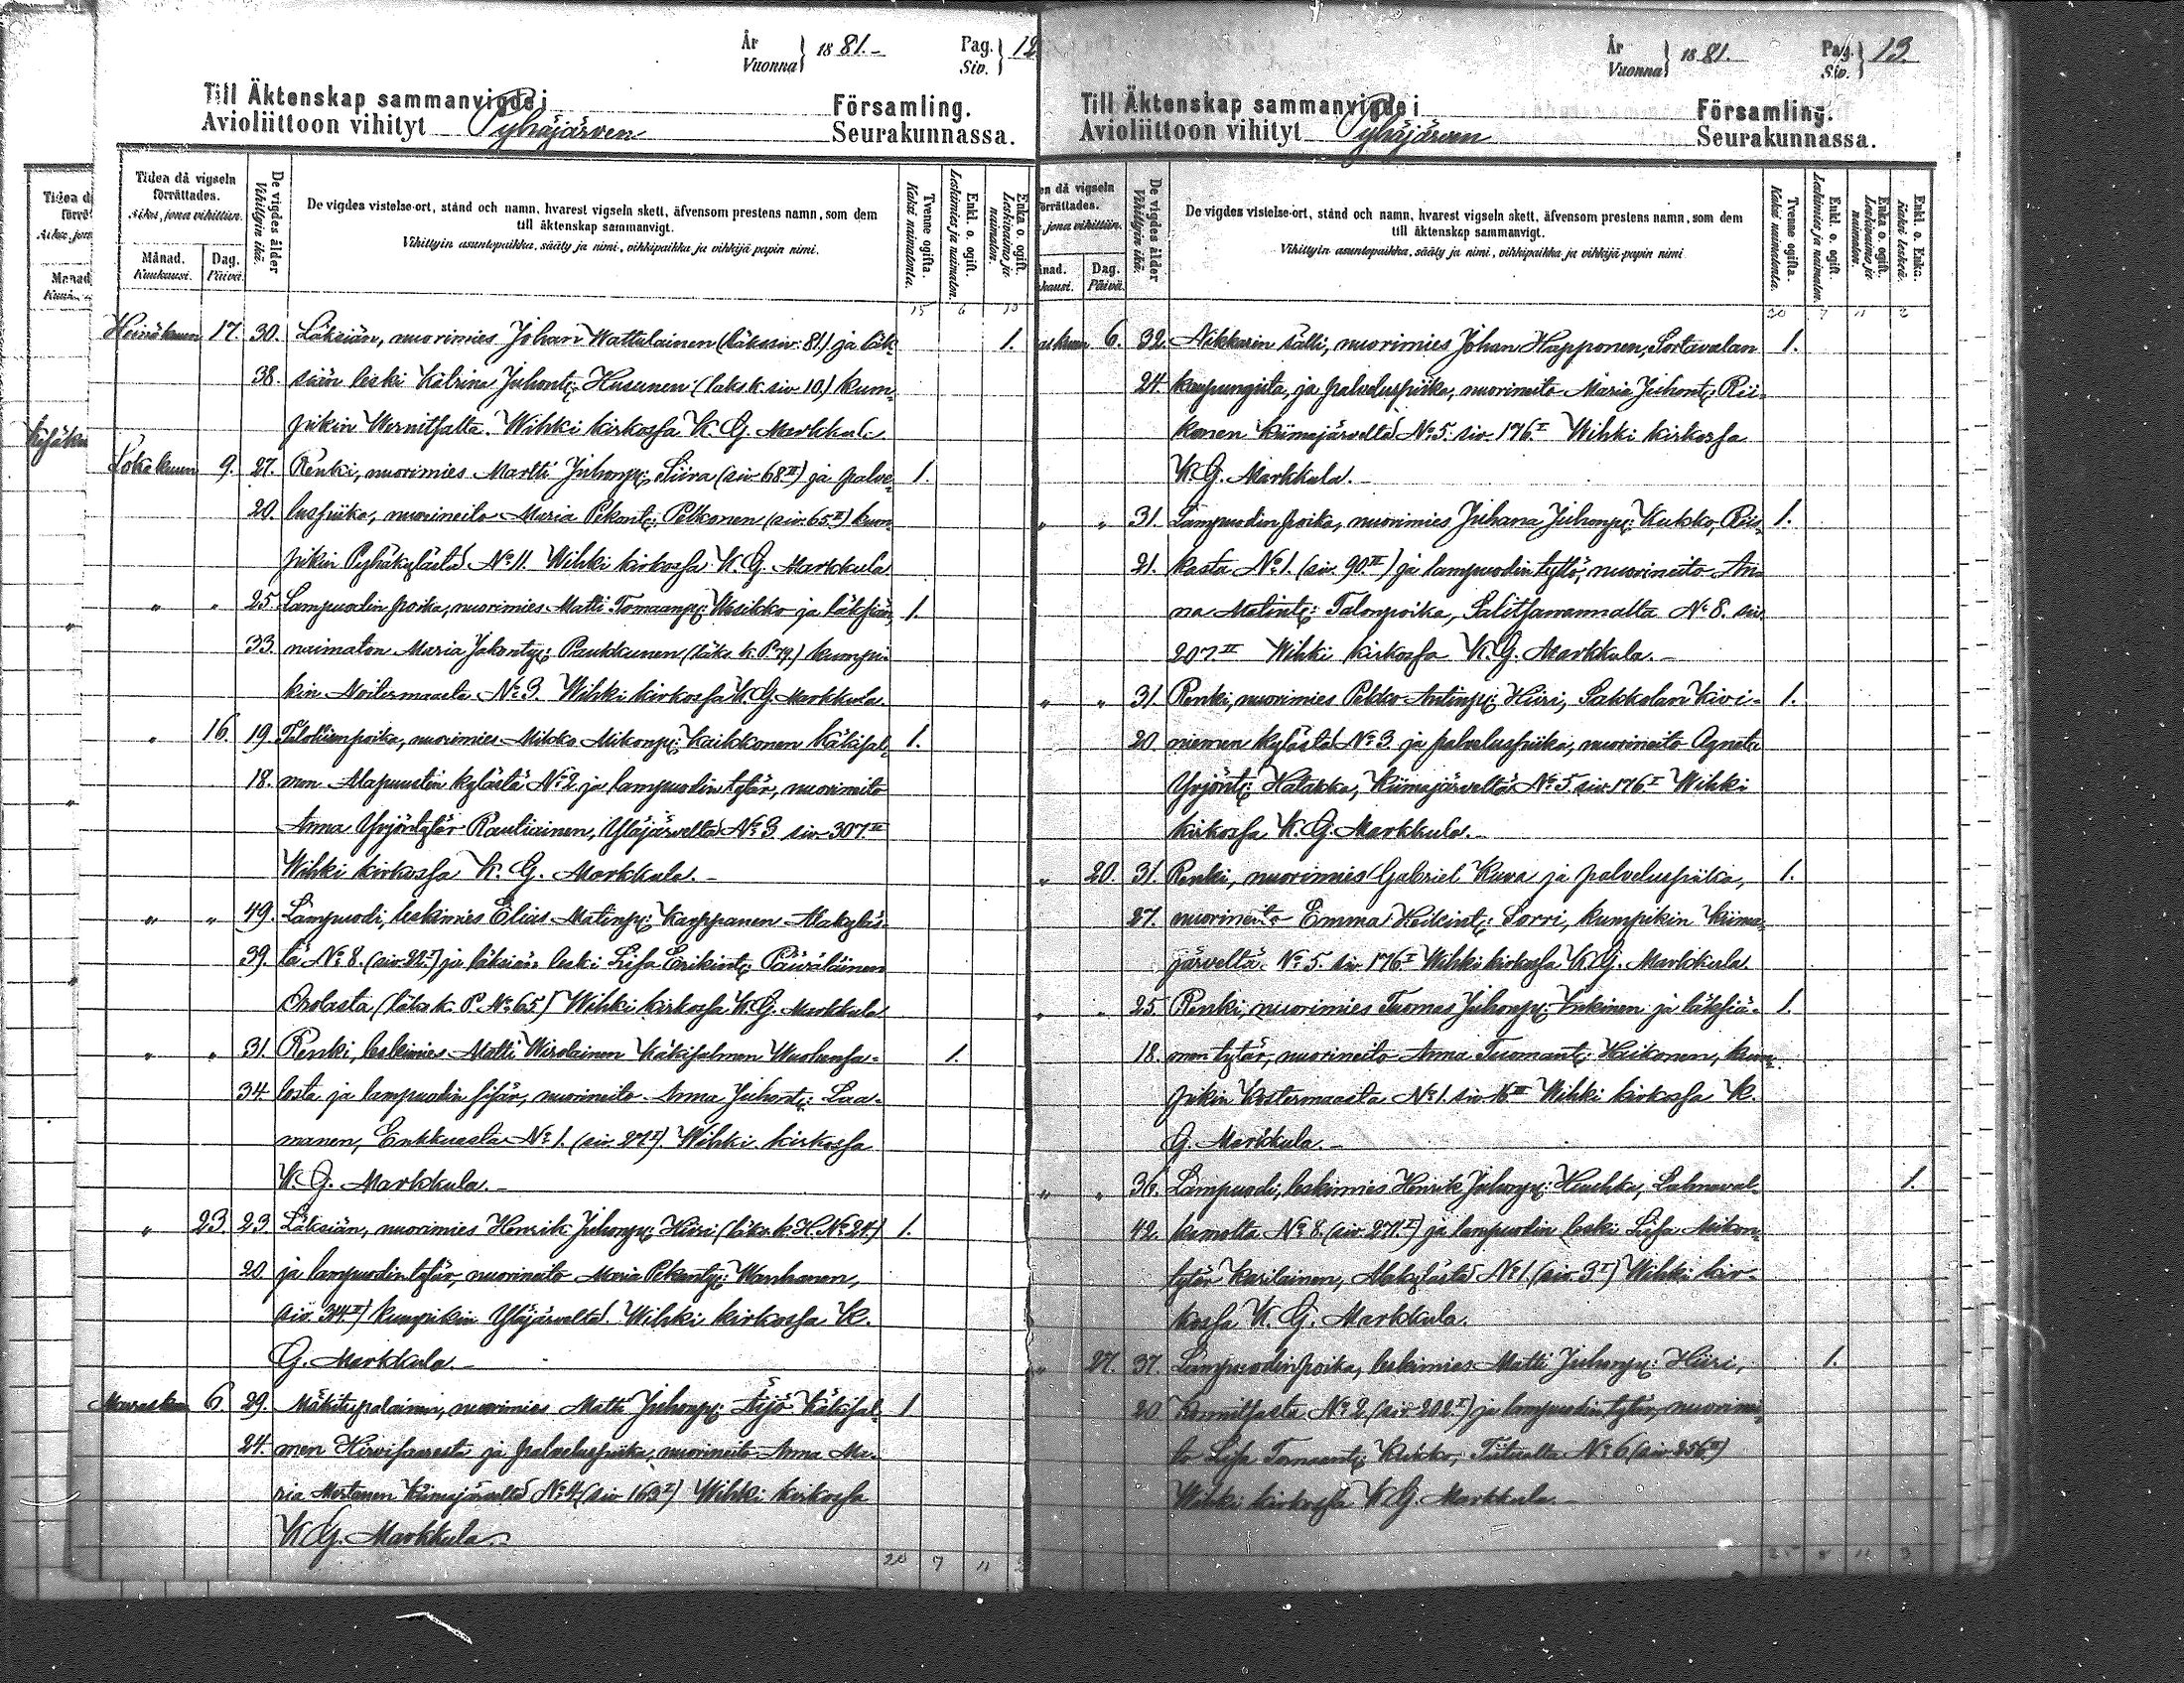 År
Vuonna } 1881.-
Pag.
Siv. } 12
Till Äktenskap sammanvigde i Församling.
Avioliittoon vihityt Pyhäjärven Seurakunnassa.
Tiden då vigseln förrättades.
Aika, jona vihittiin.
Månad. Kuukausi.
Dag. Päivä.
De vigdes ålder
Vihittyin ikä.
De vigdes vistelse-ort, stånd och namn, hvarest vigseln skett, äfvensom prestens namn, som dem
till äktenskap sammanvigt.
Vihittyin asuntopaikka, sääty ja nimi, vihkipaikka ja vihkijä papin nimi.
Tvenne ogifta.
Kaksi naimatonta.
Enkl. o. ogift.
Leskimies ja naimaton.
Enka o. ogift.
Leskivaimo ja naimaton.
15 6 10
Heinäkuun 17. 30. Läksiän, nuorimies Johan Wattulainen (läksiv: 81.) ja läk- 1.
38. siän leski Katrina Juhont: Husunen (läks. k. siv 10.) kum-
pikin Wernitsalta. Wihki kirkossa K. G. Markkula
Lokakuun 9. 27. Renki, nuorimies Martti Juhonp: Siira (siv 68 II) ja palve- 1.
20. luspiika, nuorineito Maria Pekont: Pelkonen (siv. 65. II) kum-
pikin Pyhäkylästä No 11. Wihki kirkossa K. G. Markkula
" " 25. Lampuodin poika, nuorimies Matti Tomaanp: Wesikko ja läksiän, 1.
33. naimaton Maria Jakontyt: Paukkunen (läks. k. P. 79.) kumpi-
kin Noitermaasta No 3. Wihki kirkossa K. G. Markkula.
" 16. 19. Talokkaanpoika, nuorimies Mikko Mikonp: Kaikkonen Käkisal- 1.
18. men Alapuustin kylästä No 2 ja lampuodin tytär, nuorineito
Anna Yrjöntytär Rautiainen, Yläjärveltä No 3 siv. 307. II
Wihki kirkossa K. G. Markkula.-
" " 49. Lampuodi, leskimies Elias Matinp: Karppanen Alakyläs-
39. tä No 8. (siv. 22. I) ja läksiän leski Lisa Erikint: Päiväläinen
Orolasta (läks. k. P. No 65) Wihki kirkossa K. G. Markkula
" " 31. Renki, leskimies Matti Wirolainen Käkisalmen Wuohensa- 1.
34. losta ja lampuodin sisär, nuorineito Anna Juhont: Laa-
manen, Enkkuasta No 1. (siv. 27 I). Wihki kirkossa
K. G. Markkula.-
" 23. 23. Läksiän, nuorimies Henrik Juhonp: Hiiri (läks. k. H. No 24.) 1.
20. ja lampuodin tytär, nuorineito Maria Pekont: Wanhanen,
siv. 344 II) kumpikin Yläjärveltä. Wihki kirkossa K.
G. Markkula.-
Marraskuun 6. 29. Mäkitupalainen, nuorimies Matti Juhonp: Äijö Käkisal- 1
24. men Hirvisaaresta ja palveluspiika, nuorineito Anna Ma-
ria Mertanen Kiimajärveltä No 4 (siv 163 I) Wihki kirkossa
K. G. Markkula.-
20 7 11
År
Vuonna } 1881.-
Pag.
Siv. } 13.
Till Äktenskap sammanvigde i Församling.
Avioliittoon vihityt Pyhäjärven Seurakunnassa.
en då vigseln
örrättades.
, jona vihittiin.
Dag. Päivä.
De vigdes ålder
Vihittyin ikä.
De vigdes vistelse-ort, stånd och namn, hvarest vigseln skett, äfvensom prestens namn, som dem
till äktenskap sammanvigt.
Vihittyin asuntopaikka, sääty ja nimi, vihkipaikka ja vihkijä papin nimi
Tvenne ogifta.
Kaksi naimatonta.
Enkl. o. ogift.
Leskimies ja naimaton.
Enka o. ogift.
Leskivaimo ja naimaton.
Enkl. o. Enk:.
Kaksi leskeä.
20 7 11 2
6. 32. Nikkarin sälli, nuorimies Johan Happonen, Sortavalan 1.
24. kaupungista, ja palveluspiika, nuorineito Maria Juhont: Rii-
konen Kiimajärveltä No 5. siv. 176. I Wihki kirkossa
K. G. Markkula.-
" " 31. Lampuodin poika, nuorimies Juhana Juhonp: Kukko, Riis- 1.
21. kasta No 1. (siv. 90. II) ja lampuodin tyttö, nuorineito An-
na Matint: Talonpoika, Salitsanrannalta No 8. siv.
207. II Wihki kirkossa K. G. Markkula.-
" " 31. Renki, nuorimies Pekko Antinp: Hiiri, Sakkolan Kivi- 1.
20 niemen kylästä No 3 ja palveluspiika, nuorineito Agneta
Yrjönt: Hatakka, Kiimajärveltä No 5. siv. 176. I Wihki
kirkossa K. G. Markkula.-
" 20. 31. Renki, nuorimies Gabriel Kuva ja palveluspiika, 1.
27. nuorineito Emma Heikint: Sorri, kumpikin Kiima-
järveltä No 5. siv. 176 I Wihki kirkossa K. G. Markkula.
" " 25 Renki, nuorimies Tuomas Juhonp: Inkinen ja läksiä- 1.
18. men tytär, nuorineito Anna Tuomant: Haikonen, kum-
pikin Kostermaasta No 1. siv. 16 III Wihki kirkossa K.
G. Markkula.-
" " 36. Lampuodi, leskimies Henrik Juhonp: Huuhka, Lahnaval- 1.
42. kamolta No 8. (siv. 271. I) ja lampuodin leski Lisa Mikon-
tytär Karilainen, Alakylästä No 1. (siv. 3 I) Wihki kir-
kossa K. G. Markkula.
" 27. 37. Lampuodinpoika, leskimies Matti Juhonp: Hiiri, 1.
20 Konnitsasta No 2 (siv 202. I) ja lampuodin tytär, nuorinei-
to Lisa Tomaant: Kukko, Tiitualta No 6 (siv. 256. II)
Wihki kirkossa K. G. Markkula.-
25 8 11 3